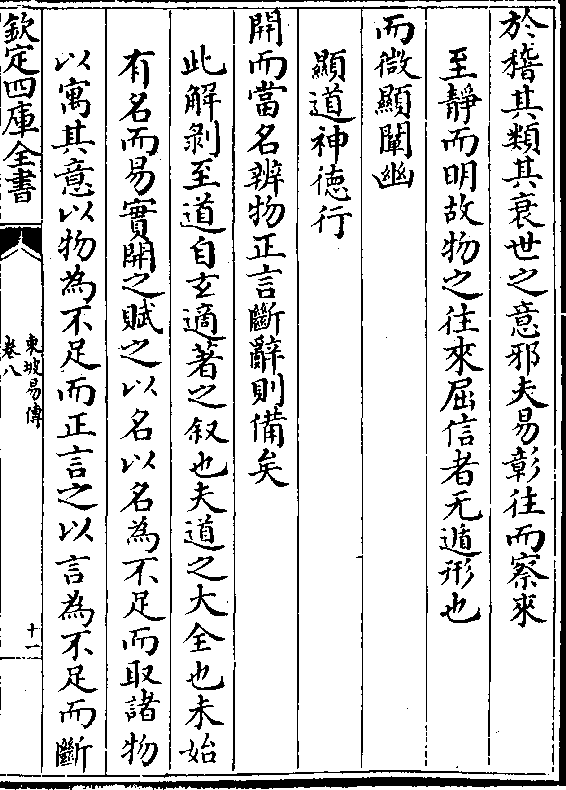 於稽其類其衰世之意邪夫易彰往而察來
至靜而明故物之往來屈信者无遁形也
而微顯闡幽
顯道神徳行
開而當名辨物正言斷辭則備矣
此解剥至道自玄適著之叙也夫道之大全也未始
有名而易實開之賦之以名以名為不足而取諸物
以寓其意以物為不足而正言之以言為不足而斷
欽定四庫全書
東坡易傳
卷八
十一